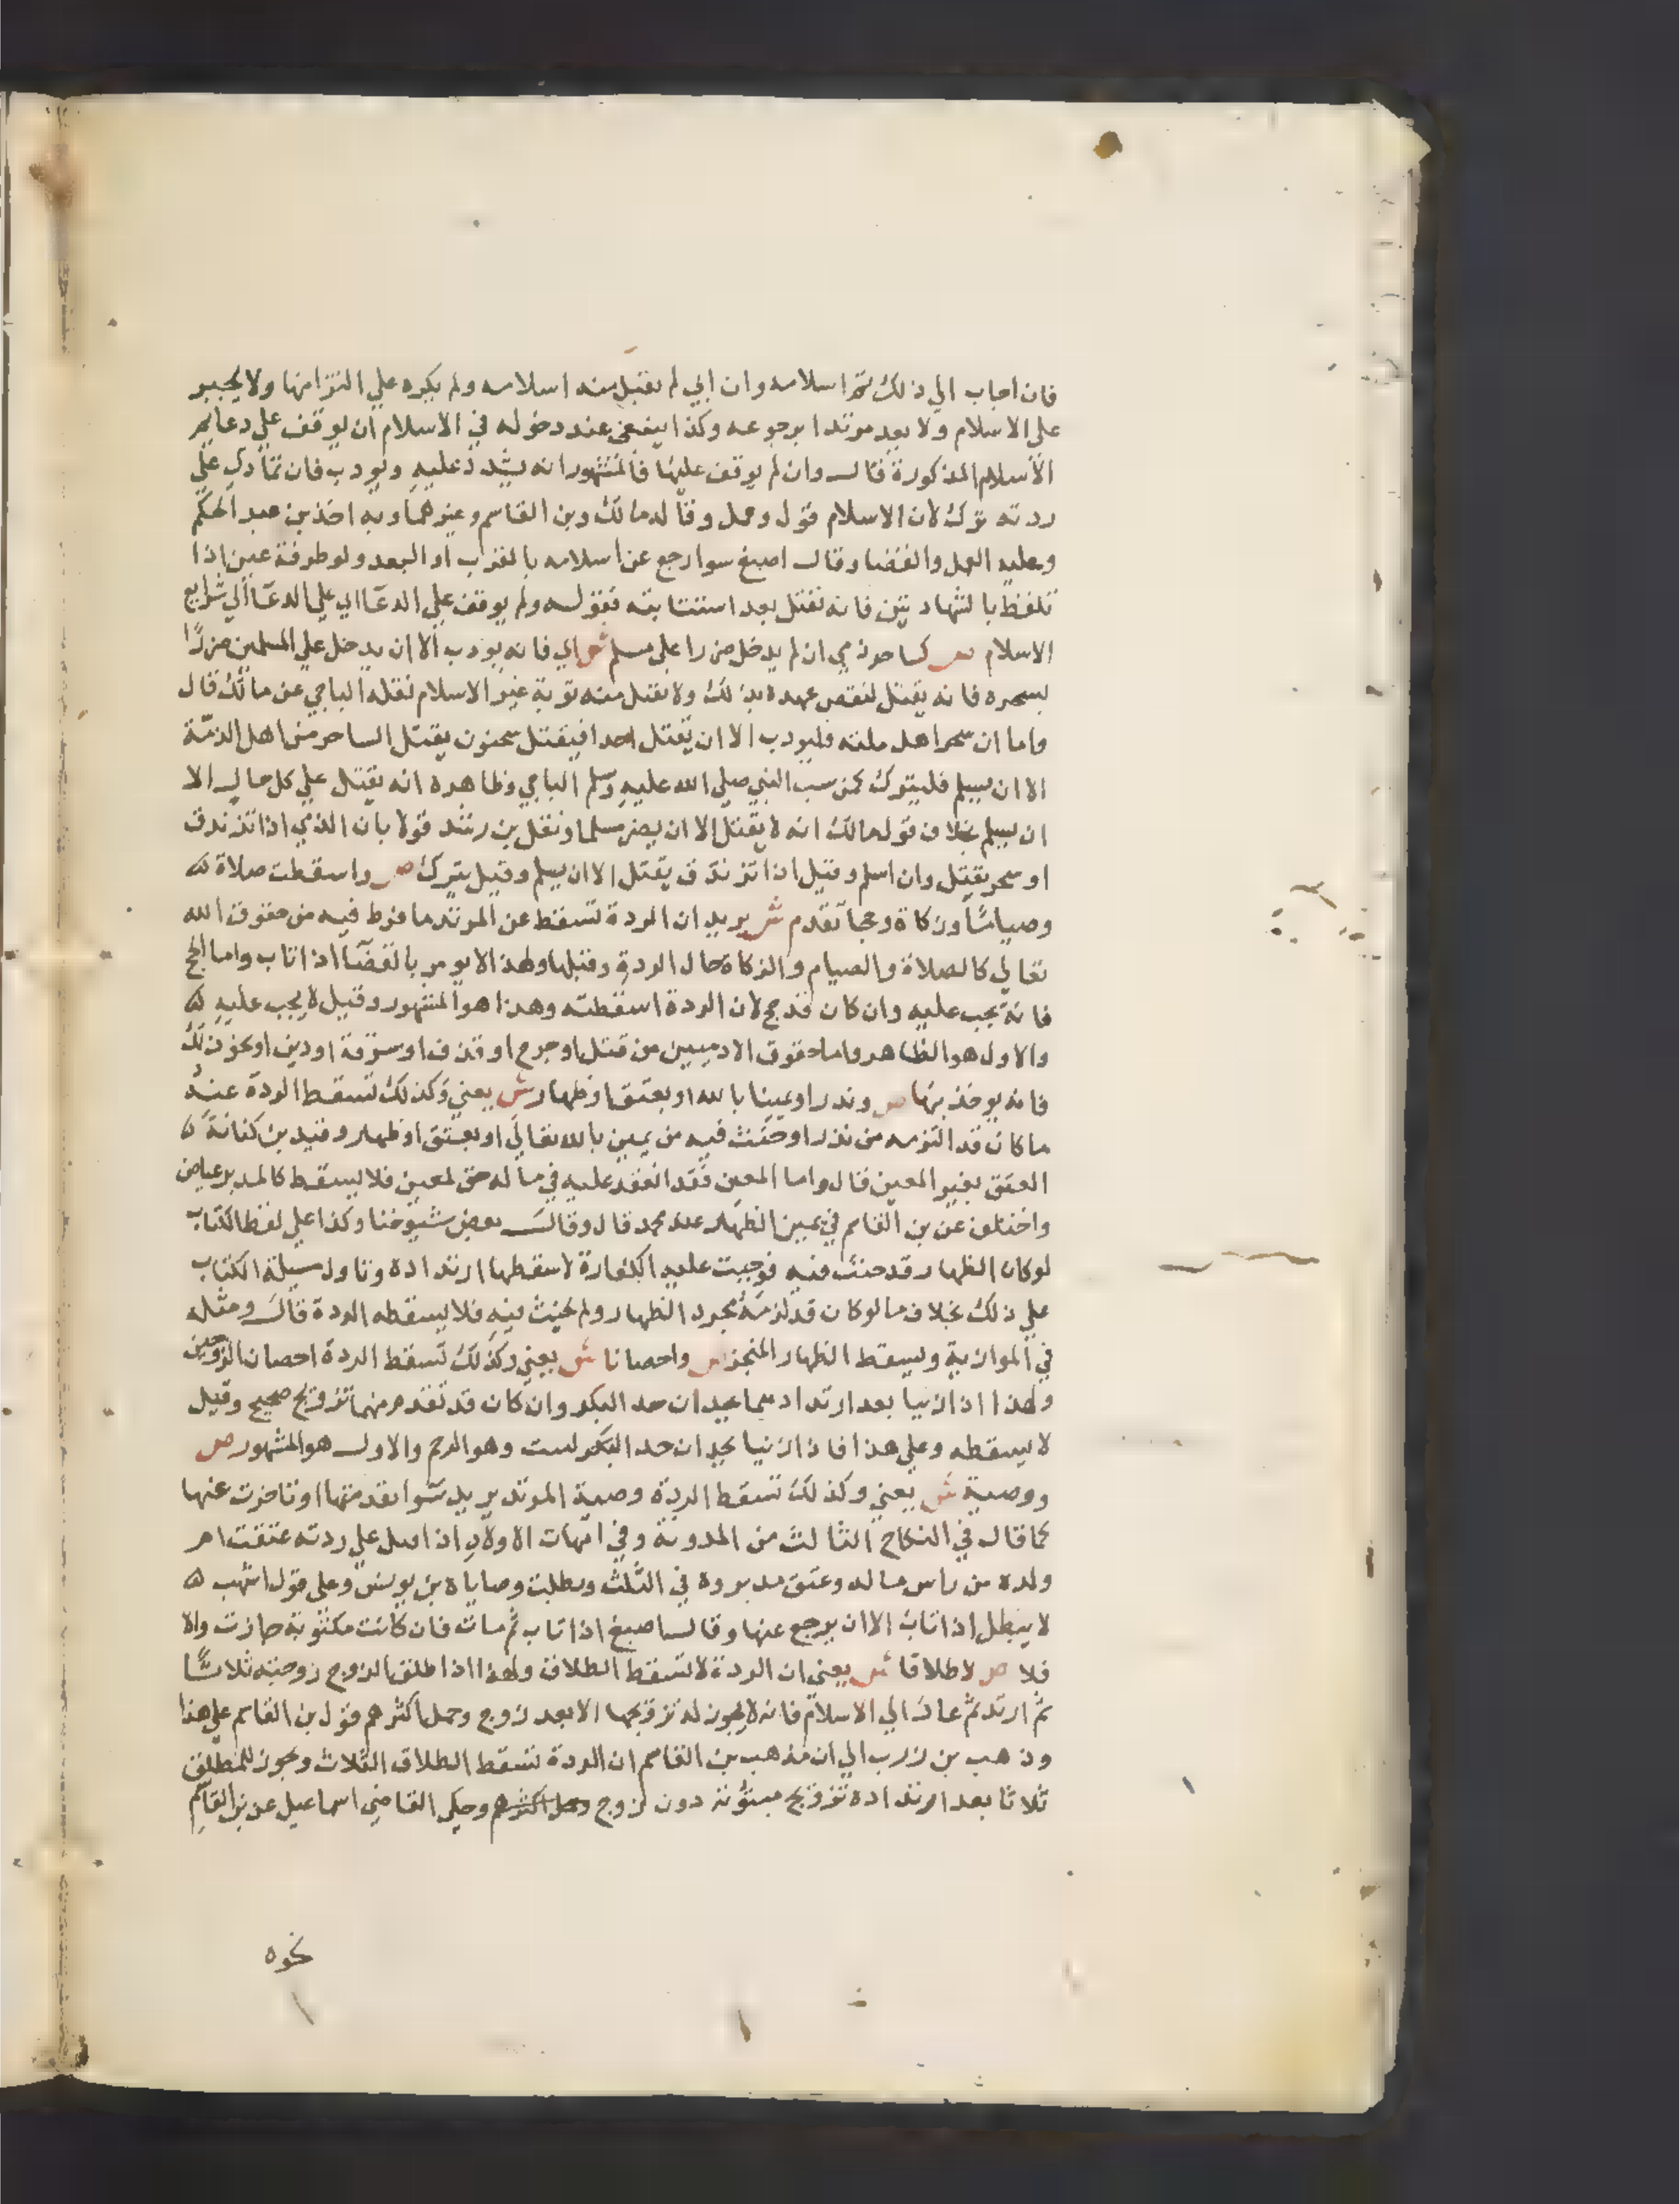 فان اجاب الي ذلك تم اسلامه وان ابي لم يقبل منه اسلامه ولم يكره علي التزامها ولا يجبر
علي الاسلام ولا يعد مرتدا برجوعه وكذا ينبغي عند دخوله في الاسلام ان يوقف علي دعايم
الاسلام المذكورة قال وان لم يوقف عليها فالمشهور انه يشدد عليه ويودب فان تمادي علي
ردته ترك لان الاسلام قول وعمل وقاله مالك وبن القاسم وغيرهما وبه اخذ بن عبد الحكم
وعليه العمل والقضا وقال اصبغ سوا رجع عن اسلامه بالقرب او البعد ولو طرفة عين اذا
تلفظ بالشهادتين فانه يقتل بعد استتابته فقوله ولم يوقف علي الدعا اي علي الدعا الي شرايع
الاسلام ص كساحر ذمي ان لم يدخل ضررا علي مسلم ش اي فانه يودب الا ان يدخل علي المسلمين ضررا
بسحره فانه يقتل لنقص عهده بذلك ولا يقبل منه توبة غير الاسلام نقله الباجي عن مالك قال
واما ان سحر اهل ملته فليودب الا ان يقتل احدا فيقتل سحنون يقتل الساحر من اهل الذمة
الا ان يسلم فليترك كمن سب النبي صلي الله عليه وسلم الباجي وظاهره انه يقتل علي كل حال الا
ان يسلم بخلاف قول مالك انه لا يقتل الا ان يضر مسلما ونقل بن رشد قولا بان الذمي اذا تزندق
او سحر يقتل وان اسلم وقيل اذا تزندق يقتل الا ان يسلم وقيل يترك ص واسقطت صلاة
وصياما وزكاة وحجا تقدم ش يريد ان الردة تسقط عن المرتد ما فرط فيه من حقوق الله
تعالي كالصلاة والصيام والزكاة حال الردة وقبلها ولهذا لا يومر بالقضا اذا تاب واما الحج
فانه يجب عليه وان كان قد حج لان الردة اسقطته وهذا هو المشهور وقيل لا يجب عليه
والاول هو الظاهر واما حقوق الادميين من قتل او جرح او قذف او سرقة او دين او نحو ذلك
فانه يوخذ بها ص ونذرا ويمينا بالله او بعتق او ظهار ش يعني وكذلك تسقط الردة عنه
ما كان قد التزمه من نذر او حنث فيه من يمين بالله تعالي او بعتق او ظهار وقيد بن كنانة
العتق بغير المعين قال واما المعين فقد انعقد عليه في ماله حق لمعين فلا يسقط كالمدبر عياض
واختلف عن بن القاسم في يمين الظهار عند محمد قال وقال بعض شيوخنا وكذا علي لفظ الكتاب
لو كان الظهار قد حنث فيه فوجبت عليه الكفارة لاسقطها ارتداده وتاول مسيلة الكتاب
علي ذلك بخلاف ما لو كان قد لزمه بمجرد الظهار ولم يحنث فيه فلا يسقطه الردة قال ومثله
في الموازية ويسقط الظهار المنجز ص واحصانا ش يعني وكذلك تسقط الردة احصان الزوجين
ولهذا اذا زنيا بعد ارتدادهما يحدان حد البكر وان كان قد تقدم منهما تزويج صحيح وقيل
لا يسقطه وعلي هذا فاذا زنيا يحدان حد البكر لست وهو الرجم والاول هو المشهور ص
ووصية ش يعني وكذلك تسقط الردة وصية المرتد يريد سوا تقدمتها او تاخرت عنها
كما قال في النكاح الثالث من المدونة وفي امهات الاولاد اذا قتل علي ردته عتقت ام
ولده من راس ماله وعتق مدبروه في الثلث وبطلت وصاياه بن يونس وعلي قول اشهب
لا يبطل اذا تاب الا ان يرجع عنها وقال اصبغ اذا تاب ثم مات فان كانت مكتوبة جازت والا
فلا ص لا طلاقا ش يعني ان الردة لا تسقط الطلاق ولهذا اذا طلق الزوج زوجته ثلاثا
ثم ارتد ثم عاد الي الاسلام فانه لا يجوز له تزويجها الا بعد زوج وحمل اكثرهم قول بن القاسم علي هذا
وذهب بن زرب الي ان مذهب بن القاسم ان الردة تسقط الطلاق الثلاث ويجوز للمطلق
ثلاثا بعد ارتداده تزويج مبتوتة دون زوج وحمل اكثرهم وحكي القاضي اسماعيل عن بن القاسم
نحوه